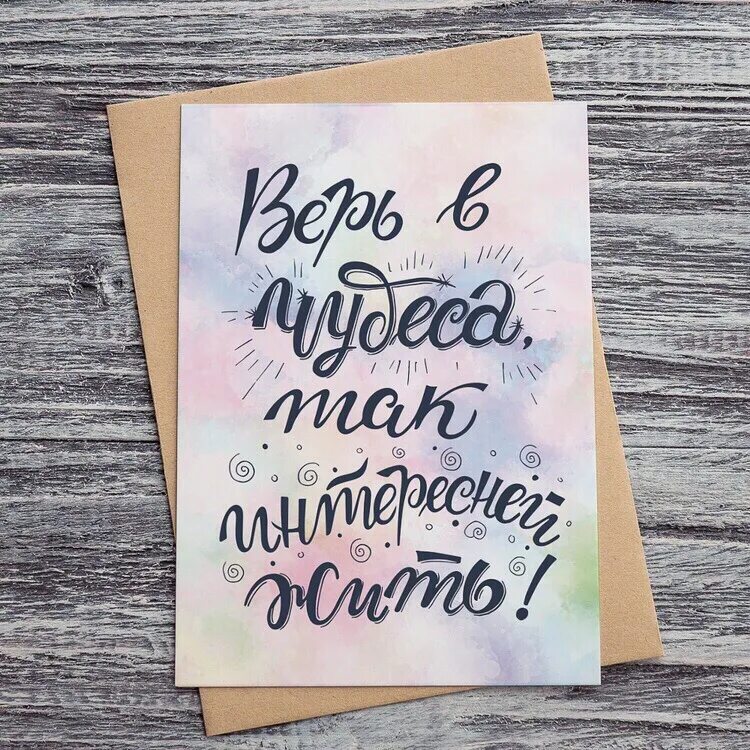 Верь в
чудеса,
так
интересней
жить!